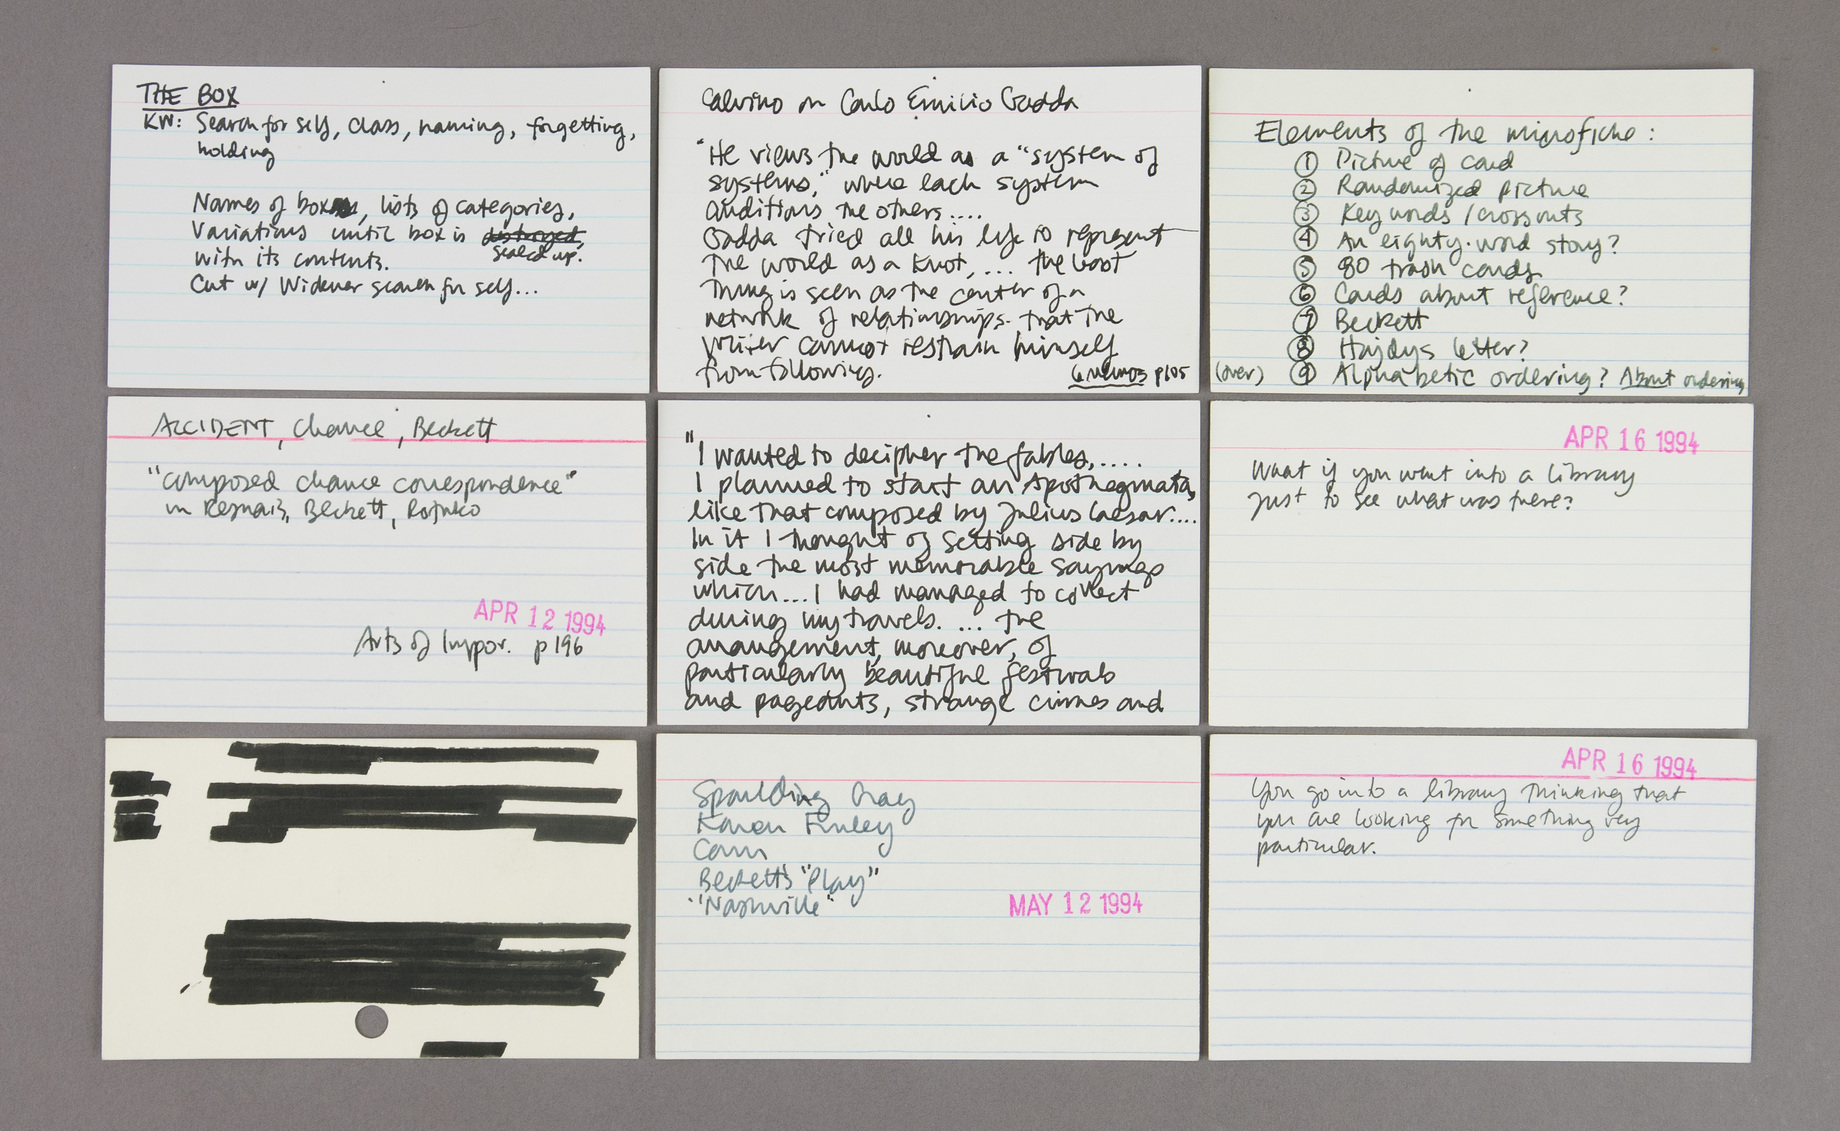 THE BOX
KW: Search for self, class, naming, forgetting,
holding
Names of box, lists of categories,
Variations until box is destroyed,
sealed up.
with its contents.
Cut w/ Widener search for self...
Calvino on Carlo Emilio Gadda
"He views the world as a "system of
systems," where each system
conditions the others....
Gadda tried all his life to represent
the world as a knot, ... the least
thing is seen as the center of a
network of relationships that the
writer cannot restrain himself
from following.
6 Memos p105
Elements of the microfiche:
① Picture of card
② Randomized picture
③ Key words / crossouts
④ An eighty-word story?
⑤ 80 trash cards
⑥ Cards about reference?
⑦ Beckett
⑧ Hajdys letter?
(over) ⑨ Alphabetic ordering? About ordering
ACCIDENT, Chance, Beckett
"composed chance correspondence"
in Resnais, Beckett, Rothko
APR 12 1994
Arts of Impov. p196
"I wanted to decipher the fables,....
I planned to start an Apothegmata,
like that composed by Julius Caesar....
In it I thought of setting side by
side the most memorable sayings
which...I had managed to collect
during my travels. ... the
arrangement, moreover, of
particularly beautiful festivals
and pageants, strange crimes and
APR 16 1994
What if you went into a library
just to see what was there?
Spaulding Gray
Karen Finley
Beckett's "Play"
"Nashville"
MAY 12 1994
APR 16 1994
You go into a library thinking that
you are looking for something very
particular.